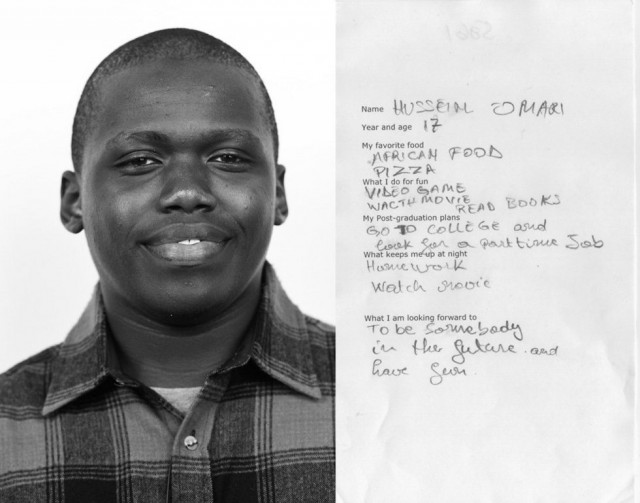 Name HUSSEIN OMARI
Year and age 17
My favorite food
AFRICAN FOOD
PIZZA
What I do for fun
VIDEO GAME
WACTH MOVIE READ BOOKS
My Post-graduation plans
GO TO COLLEGE and
look for a part time Job
What keeps me up at night
Homework
Watch movie
What I am looking forward to
To be somebody
in the future and
have fun.